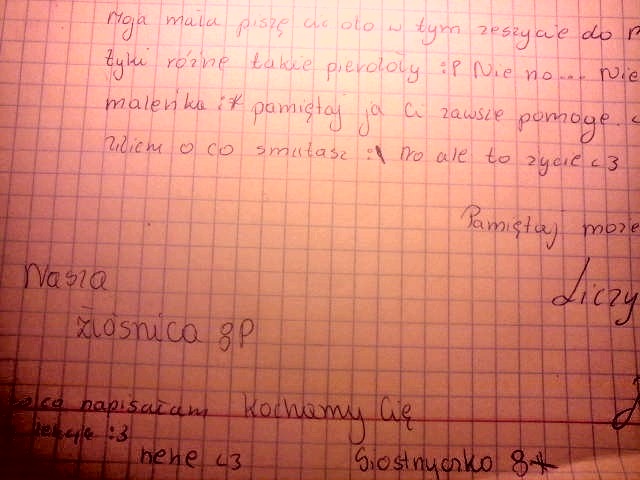 Moja mała piszę ci oto w tym zeszycie do
tyki różne takie pierdoły :P Nie no... Nie
maleńka :* pamiętaj ja Ci zawsze pomogę.
o co smutasz :\ No ale to życie <3
Pamiętaj może
Liczy
Nasza
złośnica 8P
napisałam Kochamy Cię
:3
hehe <3 Siostrzyczko 8*